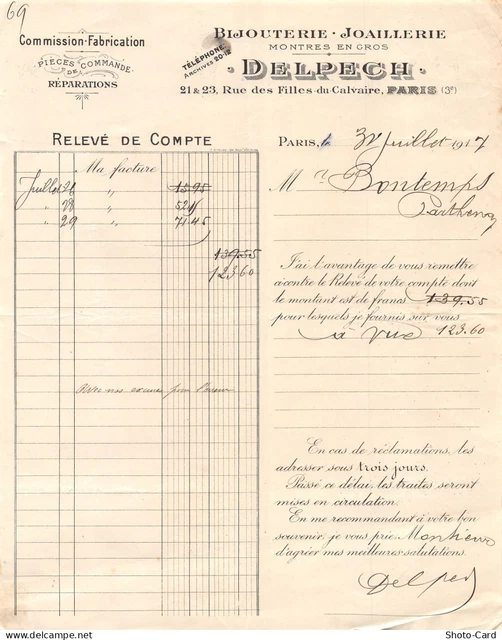 69
Commission-Fabrication
PIÈCES COMMANDE
DE
RÉPARATIONS
TÉLÉPHONE
ARCHIVES 20-12
BIJOUTERIE - JOAILLERIE
MONTRES EN GROS
DELPECH
21 & 23, Rue des Filles-du-Calvaire, PARIS (3e)
RELEVÉ DE COMPTE
Ma facture
Juillet 26 " 15 95
" 28 "
" 29 " 71 45
139.55
123.60
Avec nos excuses pour l'erreur
PARIS, le 31 Juillet 1917
Mr Bontemps
Parthenay
J'ai l'avantage de vous remettre
ci-contre le Relevé de votre compte dont
le montant est de francs 139.55
pour lesquels je fournis sur vous 123.60
à vue
En cas de réclamations, les
adresser sous trois jours.
Passé ce délai, les traites seront
mises en circulation.
En me recommandant à votre bon
souvenir, je vous prie, Monsieur
d'agréer mes meilleures salutations.
Delpech
©Shoto-Card
www.delcampe.net
Shoto-Card